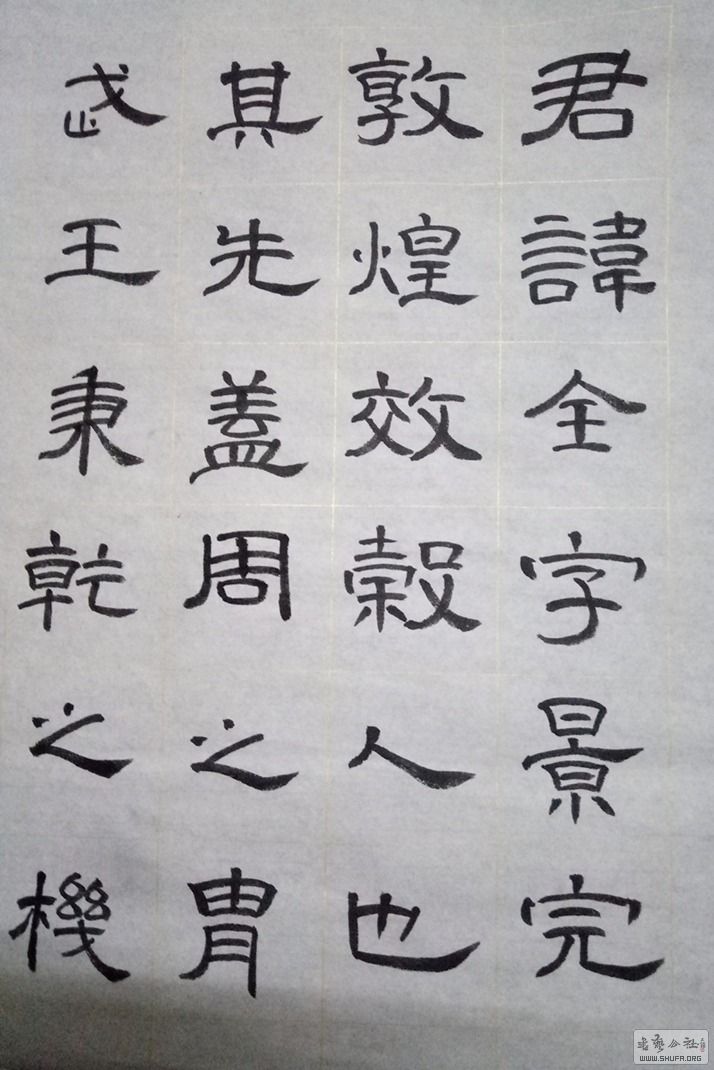 君諱全字景完
敦煌效穀人也
其先蓋周之胄
武王秉乾之機
书艺公社
WWW.SHUFA.ORG